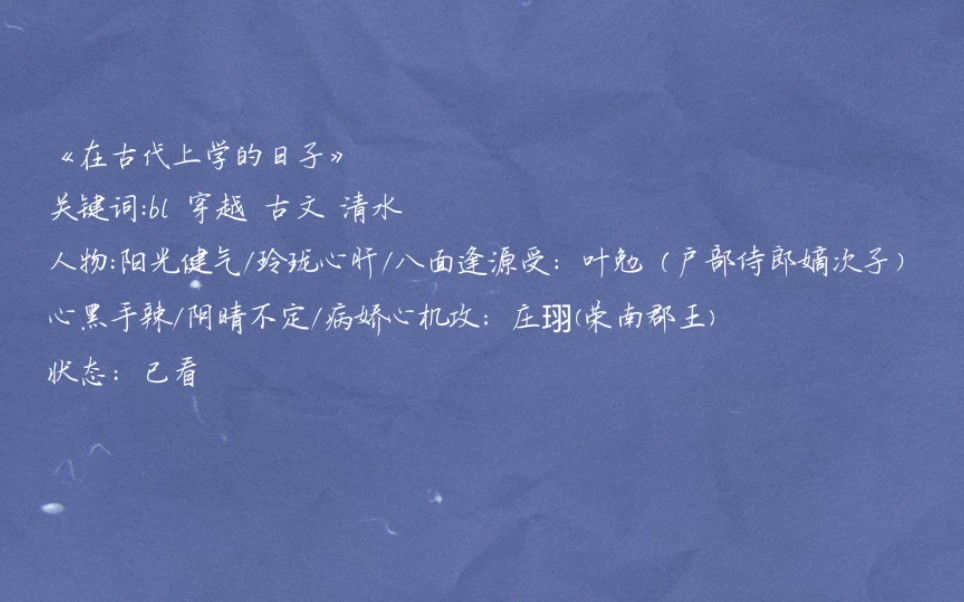 《在古代上学的日子》
关键词:bl 穿越 古文 清水
人物:阳光健气/玲珑心肝/八面逢源受：叶勉（户部侍郎嫡次子）
心黑手辣/阴晴不定/病娇心机攻：庄珝(荣南郡王)
状态：已看